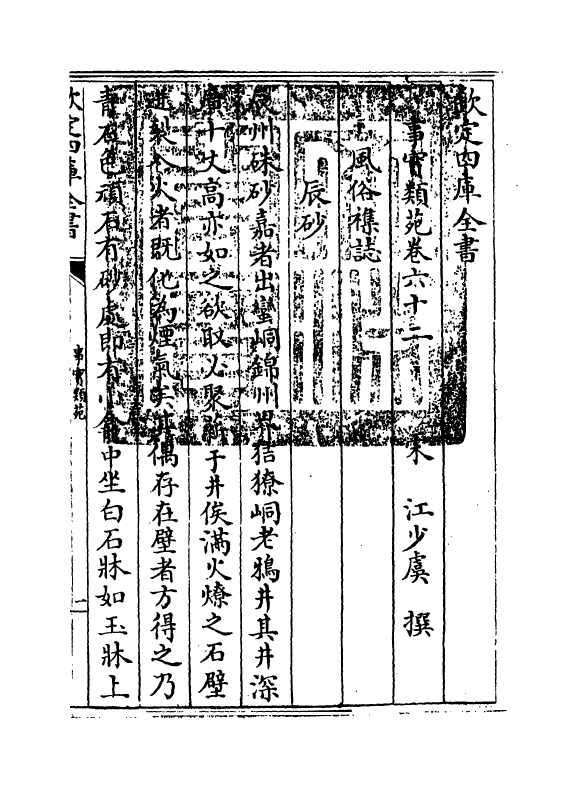 欽定四庫全書
事實類苑卷六十二
宋 江少虞 撰
風俗襍誌
辰砂
辰州硃砂嘉者出蠻峒錦州界狤獠峒老鴉井其井深
廣十丈高亦如之欲取必聚薪于井俟滿火燎之石壁
迸裂入火者既化為煙氣矣其偶存在壁者方得之乃
青石色頑石有砂處即有小龕中坐白石牀如玉牀上
欽定四庫全書
事實類苑
一